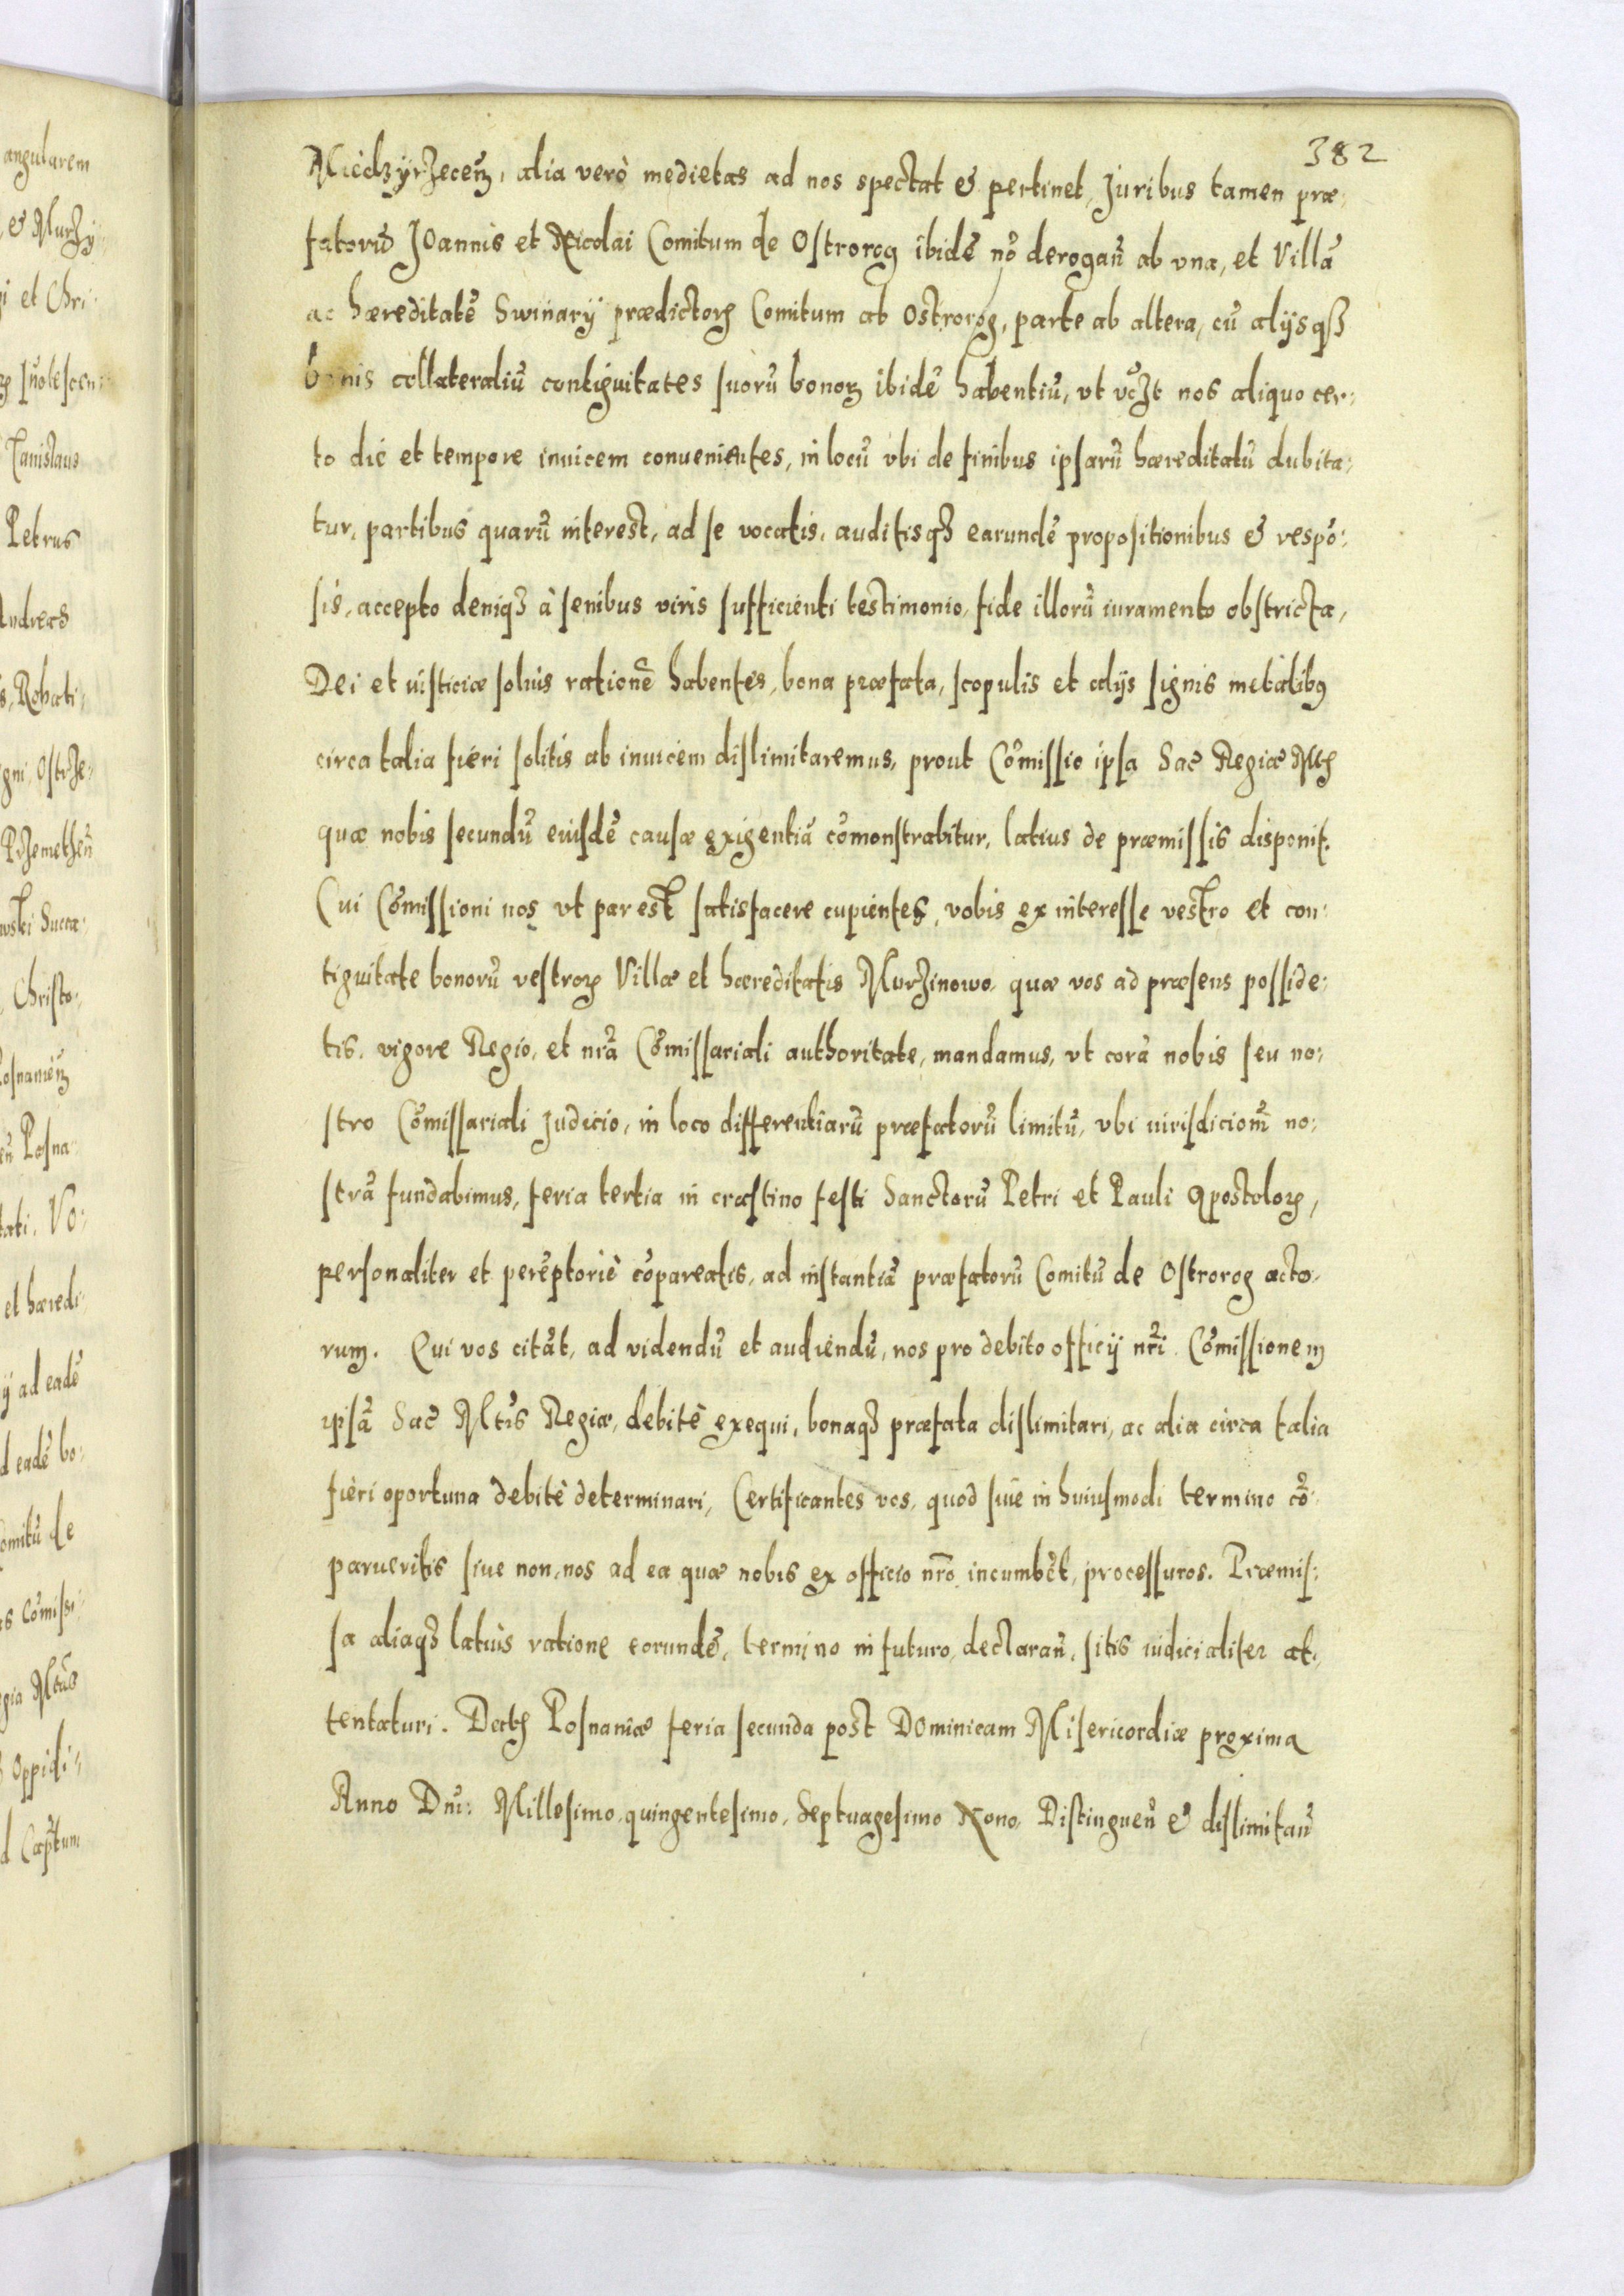 382
Miedzÿrzeceñ, alia verò medietas ad nos spectat & pertinet, Juribus tamen præ:
fatorũ Joannis et Nicolai Comitum de Ostrorog ibidẽ nõ derogañ ab vna, et Villã
ac hæreditatẽ Swinary prædictoꝝ Comitum ab Ostrorog, parte ab altera, cũ alijsqꝫ
bonis collateraliũ contiguitates suorũ bonoꝝ ibidẽ habentiũ, vt nos aliquo cer:
to die et tempore inuicem conuenientes, in locũ vbi de finibus ipsarũ hæreditatũ dubita:
tur, partibus quarũ interest, ad se vocatis, auditisqꝫ earundẽ propositionibus & respõ:
sis, accepto deniqꝫ à senibus viris sufficienti testimonio, fide illorũ iuramento obstricta,
Dei et iusticiæ solius rationẽ habentes, bona præfata, scopulis et alijs signis metalibꝯ
circa talia fieri solitis ab inuicem dislimitaremus, prout Cõmissio ipsa Sac̃ Regiæ Mtꝭ
quæ nobis secundũ eiusdẽ causæ exigentiã cõmonstrabitur, latius de præmissis disponit.
Cui Cõmissioni nos vt par est satisfacere cupientes, vobis ex interesse vestro et con:
tiguitate bonorũ vestroꝝ Villæ et hæreditatis Murzinowo, quæ vos ad præsens posside:
tis, vigore Regio, et nrã Cõmissariali authoritate, mandamus, vt corã nobis seu no:
stro Cõmissariali Judicio, in loco differentiarũ præfatorũ limitũ, vbi iurisdiciom̃ no:
strã fundabimus, feria tertia in crastino festi Sanctorũ Petri et Pauli Apostoloꝝ,
personaliter et perẽptoriè cõpareatis, ad instantiã præfatorũ Comitũ de Ostrorog acto:
rum. Qui vos citãt, ad videndũ et audiendũ, nos pro debito officij nr̃i Cõmissionem
ipsã Sac̃ Mtĩs Regiæ, debitè exequi, bonaqꝫ præfata dislimitari, ac alia circa talia
fieri oportuna debitè determinari, Certificantes vos, quod siue in huiusmodi termino cõ:
parueritis siue non, nos ad ea quæ nobis ex officio nr̃o incumbẽt, processuros. Præmis:
sa aliaqꝫ latius ratione eorundẽ, termino in futuro, declarañ, sitis iudicialiter at:
tentaturi. Datꝭ Posnaniæ feria secunda post Dominicam Misericordiæ proxima
Anno Dñi: Millesimo quingentesimo, Septuagesimo Nono, Distingueñ & dislimitañ